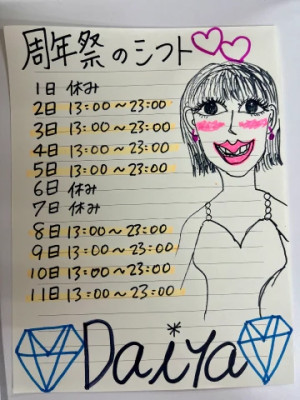 周年祭のシフト
1日 休み
2日 13:00～23:00
3日 13:00～23:00
4日 13:00～23:00
5日 13:00～23:00
6日 休み
7日 休み
8日 13:00～23:00
9日 13:00～23:00
10日 13:00～23:00
11日 13:00～23:00
Daiya